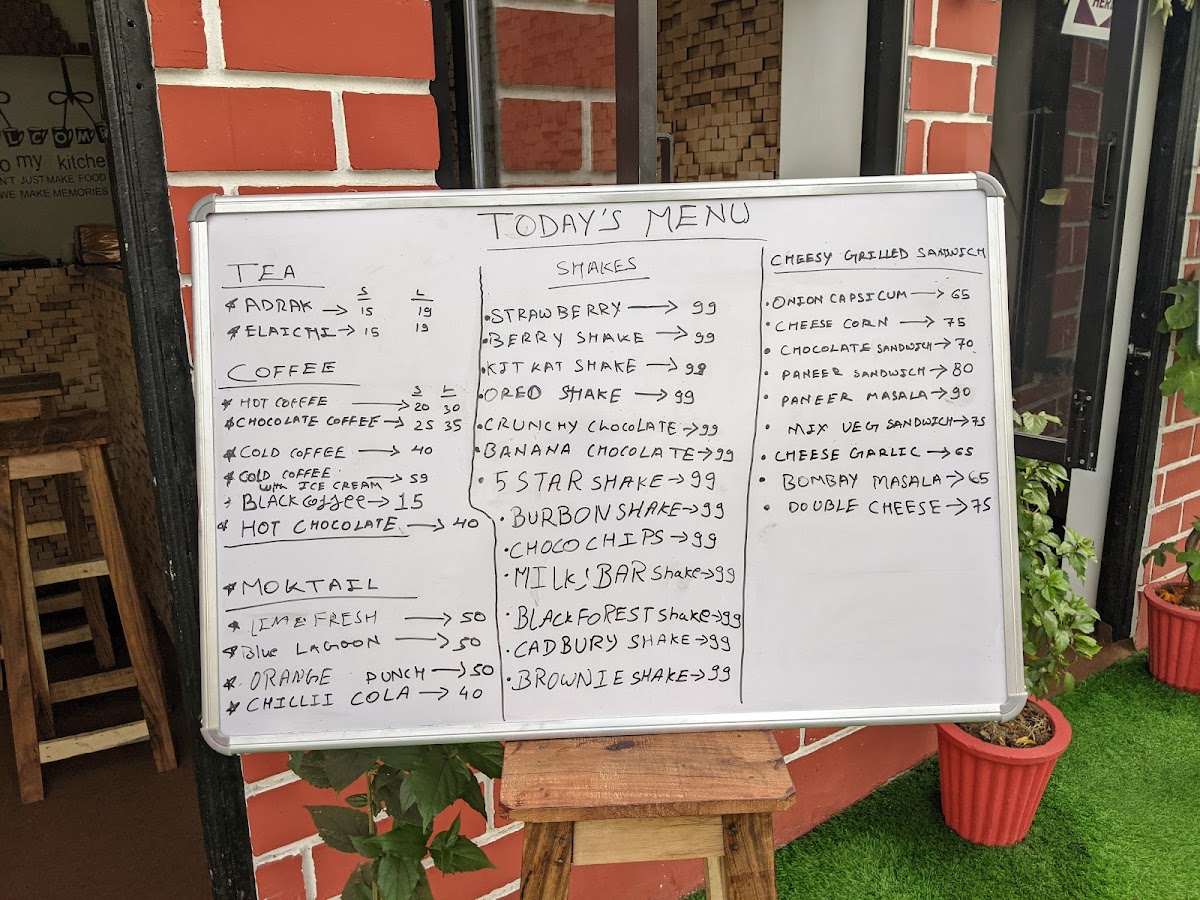 TODAY'S MENU
TEA
S L
ADRAK → 15 19
ELAICHI → 15 19
COFFEE
S L
HOT COFFEE → 20 30
CHOCOLATE COFFEE → 25 35
COLD COFFEE → 40
COLD COFFEE
with ICE CREAM → 59
BLACK COFFEE → 15
HOT CHOCOLATE → 40
MOKTAIL
LIME FRESH → 50
Blue LAGOON → 50
ORANGE PUNCH → 50
CHILLII COLA → 40
SHAKES
STRAWBERRY → 99
BERRY SHAKE → 99
KIT KAT SHAKE → 99
OREO SHAKE → 99
CRUNCHY CHOCOLATE → 99
BANANA CHOCOLATE → 99
5 STAR SHAKE → 99
BURBON SHAKE → 99
CHOCO CHIPS → 99
MILK BAR Shake → 99
BLACK FOREST Shake → 99
CADBURY SHAKE → 99
BROWNIE SHAKE → 99
CHEESY GRILLED SANDWICH
ONION CAPSICUM → 65
CHEESE CORN → 75
CHOCOLATE SANDWICH → 70
PANEER SANDWICH → 80
PANEER MASALA → 90
MIX VEG SANDWICH → 75
CHEESE GARLIC → 65
BOMBAY MASALA → 65
DOUBLE CHEESE → 75
LCOM
o my kitche
N'T JUST MAKE FOOD
WE MAKE MEMORIES
HER